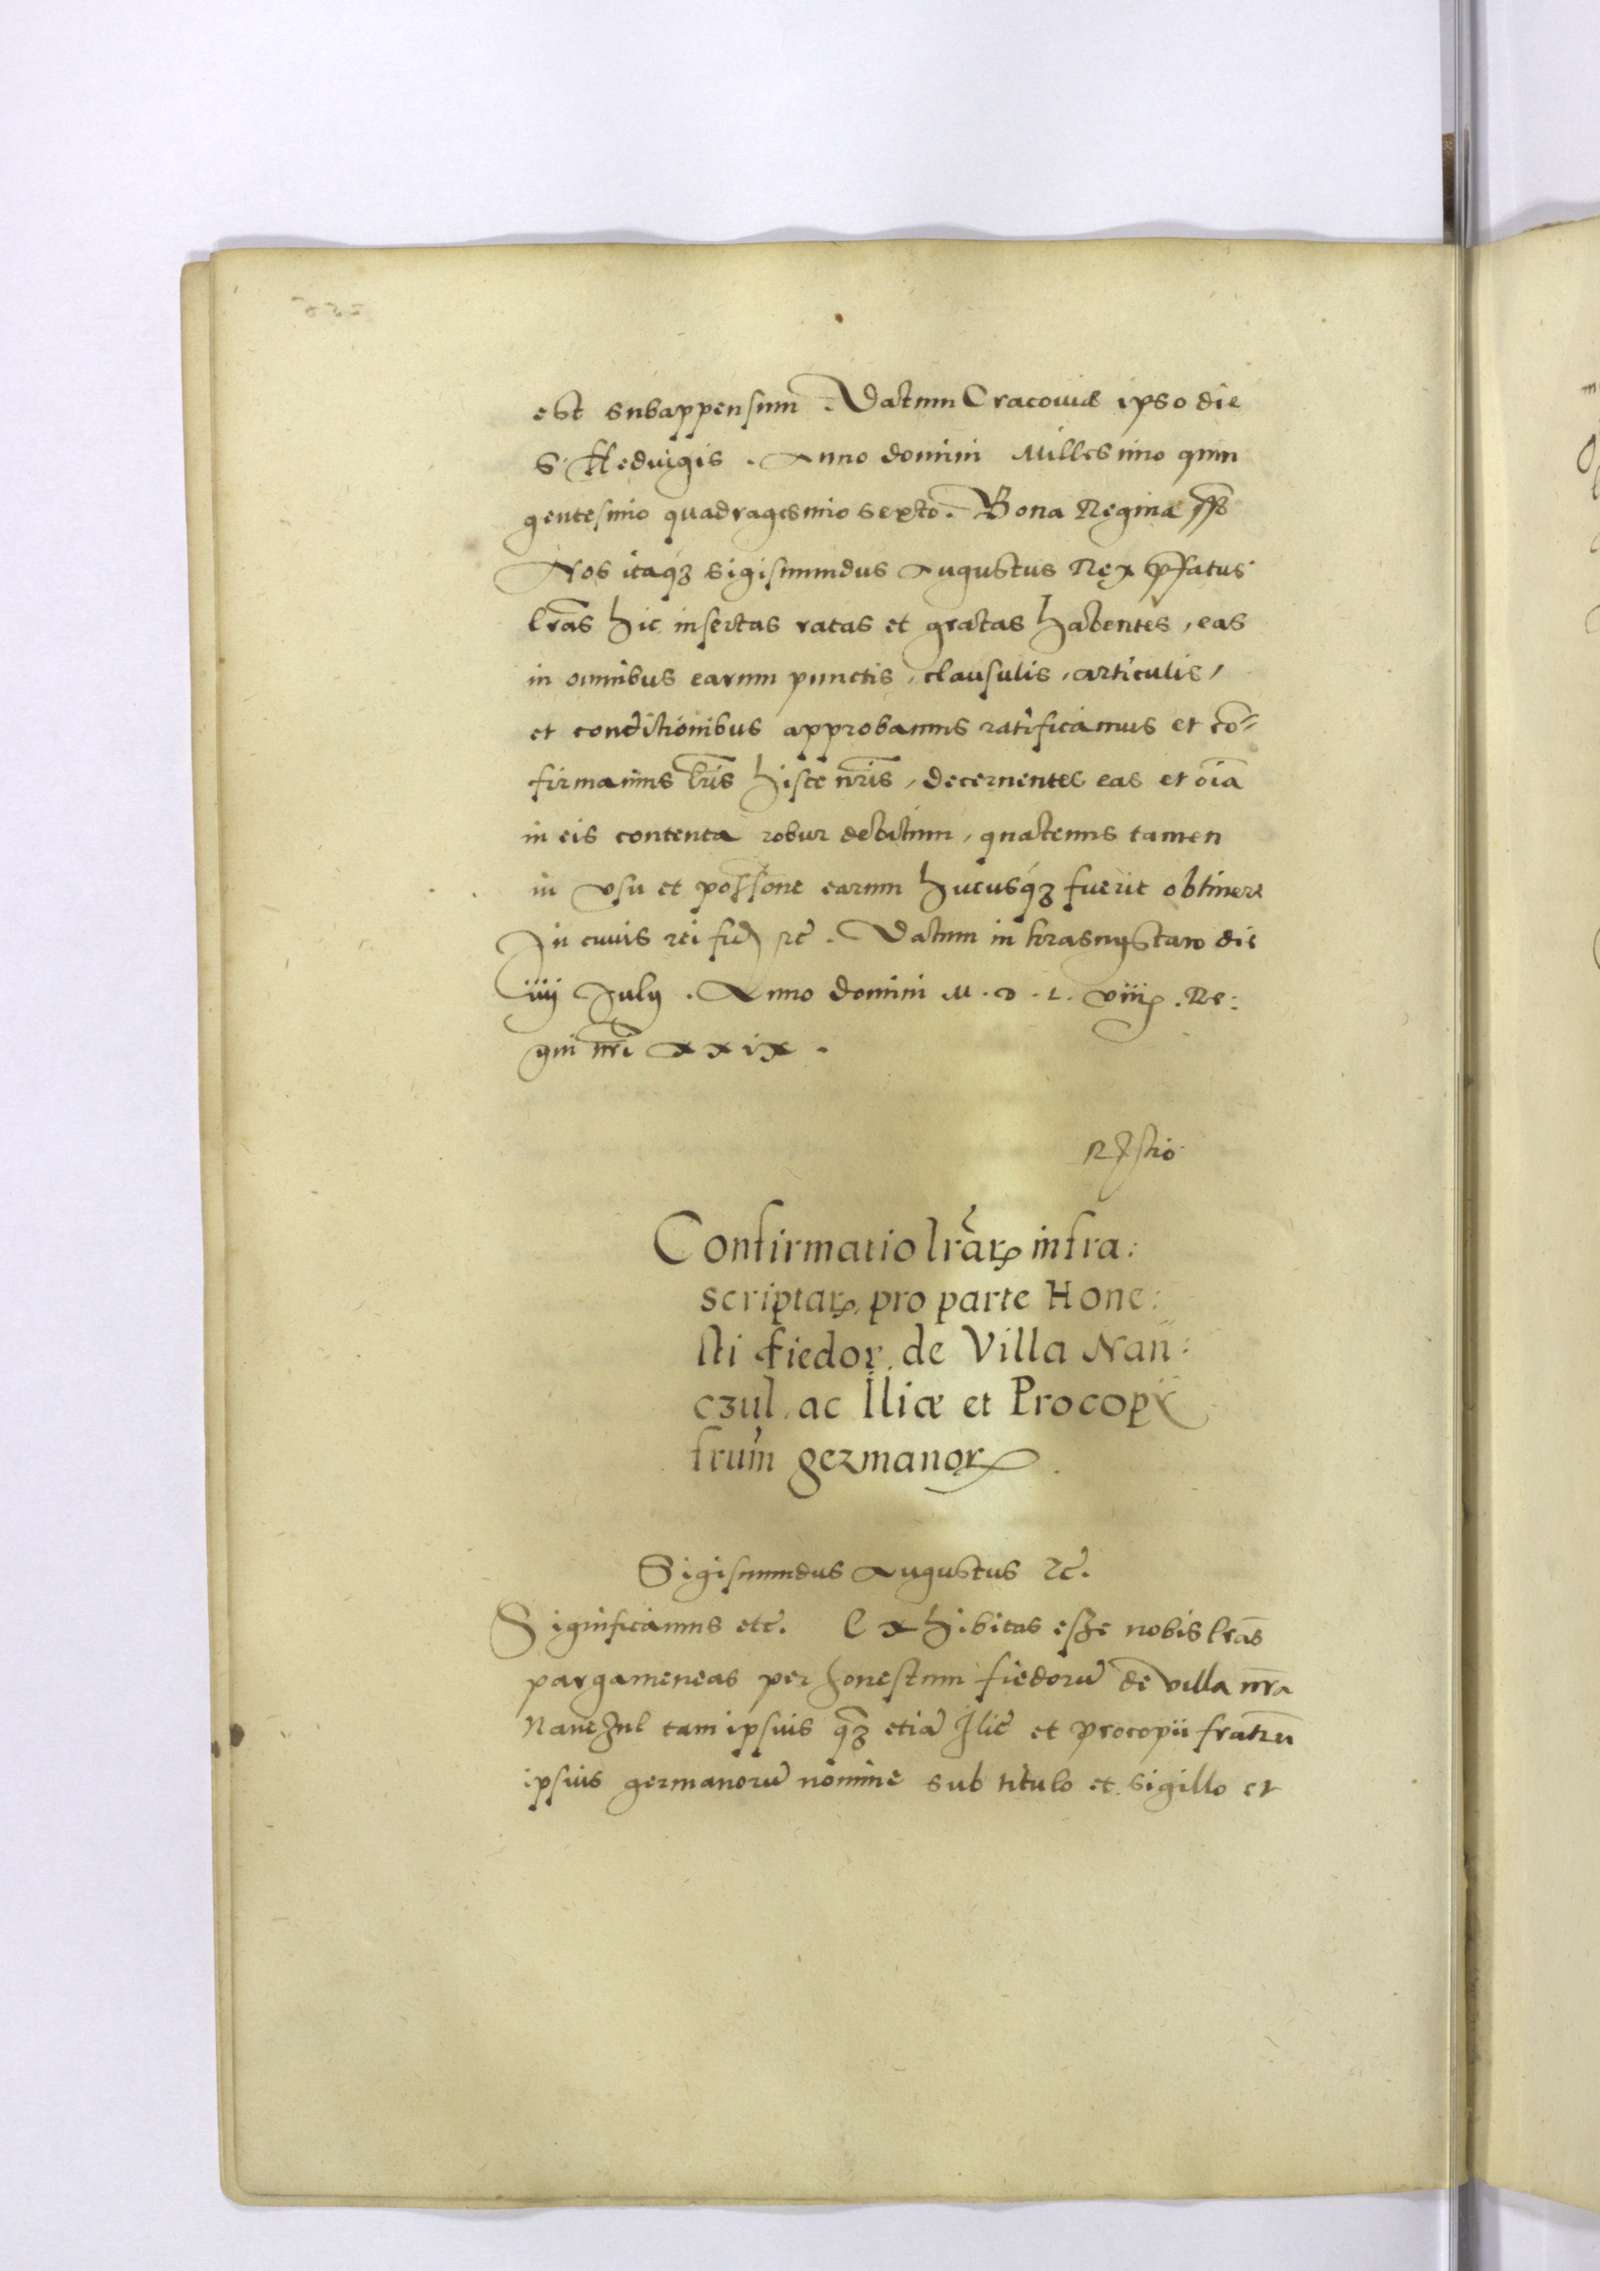 est subappensum . Datum Cracoviæ ipso die
S. Heduigis . Anno domini Millesimo quin
gentesimo quadragesimo sexto . Bona Regina ss
Nos itaqꝫ Sigismundus Augustus Rex p̄fatus
lr̄as hic insertas ratas et gratas habentes, eas
in omnibus earum punctis, clausulis, articulis,
et conditionibus approbamus ratificamus et cō-
firmamus lr̄is hisce nr̄is, decernentes eas et oīa
in eis contenta robur debitum, quatenus tamen
in vsu et possōne earum hucusqꝫ fuerit obtinere
In cuius rei fid ꝛc̄ . Datum in krasnystaw die
iiij July . Anno domini M . D . L . viiij . Re:
gni nr̄i xxix .
Confirmatio lr̄aꝝ infra:
scriptaꝝ pro parte Hone:
sti Fiedor de Villa Nan:
czul ac Iliæ et Procopij
fr̄um germanoꝝ .
Sigismundus Augustus ꝛc̄ .
Significamus etc̄ . Exhibitas esse nobis lr̄as
pargameneas per honestum fiedorū de villa nr̄a
Nanczul tam ipsius q̄ꝫ etiā Ilie et procopii fratrū
ipsius germanorū nomine sub titulo et sigillo et